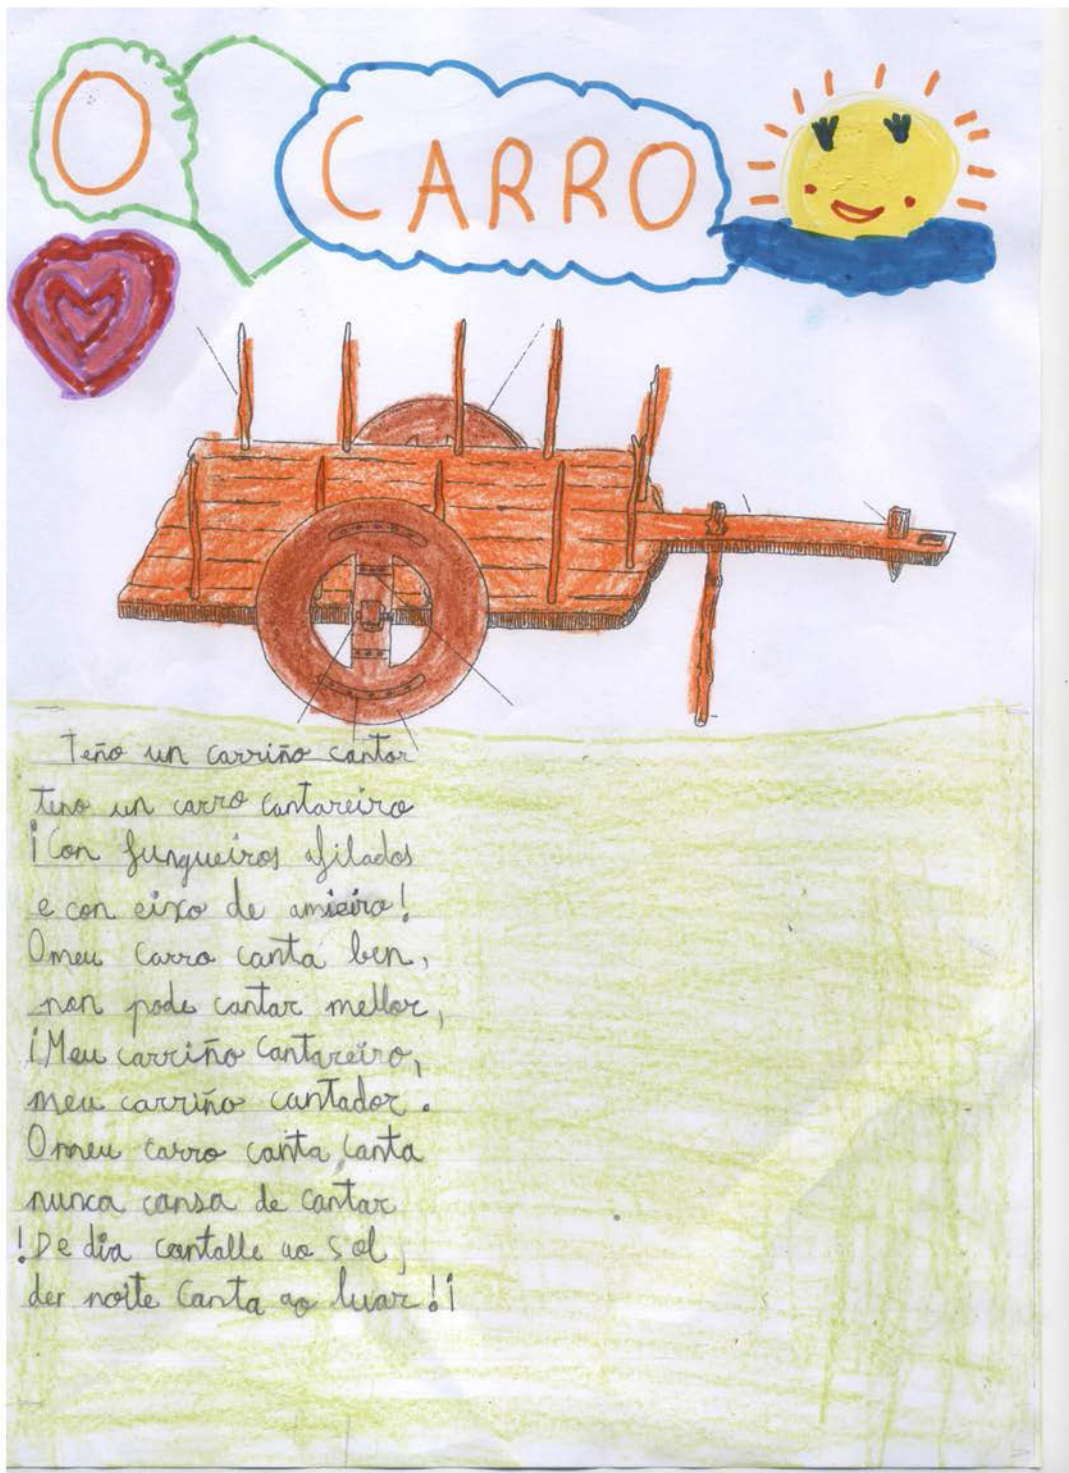 O CARRO
Teño un carriño cantar
teno un carro cantareiro
¡Con fungueiros afilados
e con eixo de amieiro!
O meu carro canta ben,
non pode cantar mellor,
¡Meu carriño cantareiro,
meu carriño cantador.
O meu carro canta, canta
nunca cansa de cantar
!De dia cantalle ao sol,
der noite canta ao luar!¡